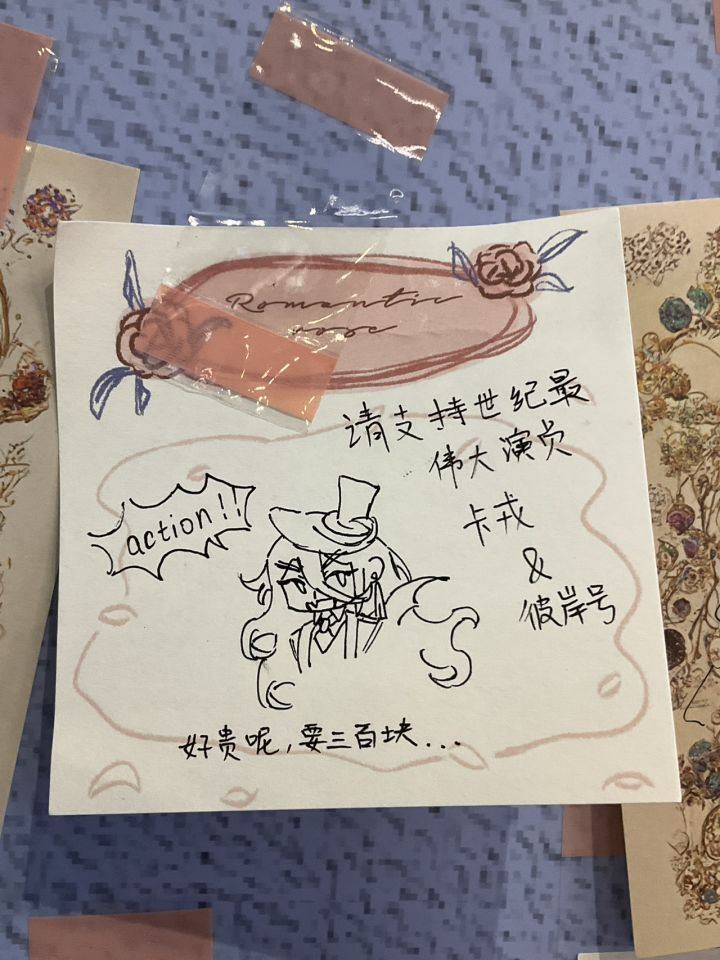 Romantic
rose
请支持世纪最
伟大演员
卡戎
&
彼岸号
action!!
好贵呢，要三百块...